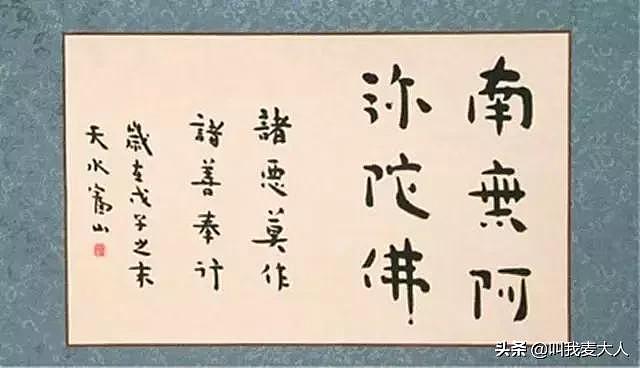 南無阿
弥陀佛
諸惡莫作
諸善奉行
歲在戊子之末
天水
山
头条 @叫我麦大人